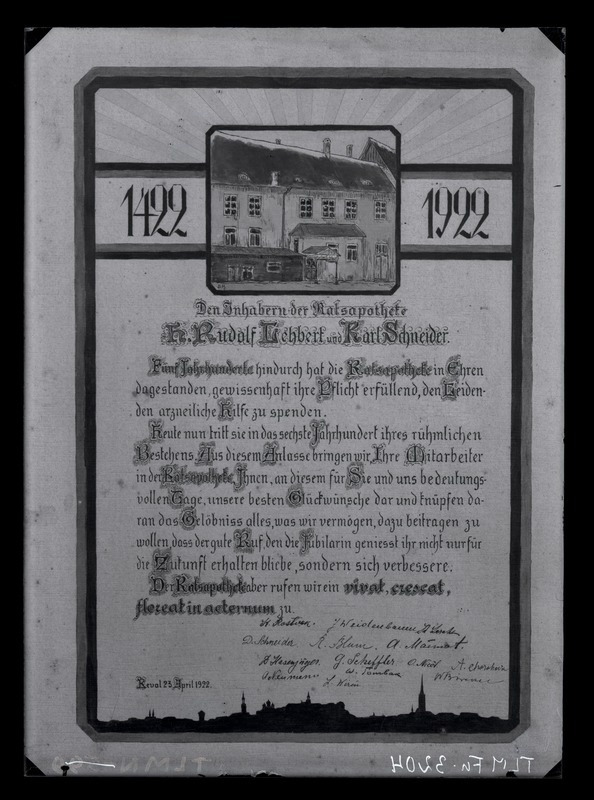 1422
1922
Den Inhabern der Ratsapotheke
Fr. Rudolf Lehbert und Karl Schneider.
Fünf Jahrhunderte hindurch hat die Ratsapotheke in Ehren
dagestanden, gewissenhaft ihre Pflicht erfüllend, den Leiden-
den arzneiliche Hilfe zu spenden.
Heute nun tritt sie in das sechste Jahrhundert ihres rühmlichen
Bestehens. Aus diesem Anlasse bringen wir, Ihre Mitarbeiter
in der Ratsapotheke, Ihnen, an diesem für Sie und uns bedeutungs-
vollen Tage, unsere besten Glückwünsche dar und knüpfen da-
ran das Gelöbniss alles, was wir vermögen, dazu beitragen zu
wollen, dass der gute Ruf, den die Jubilarin geniesst ihr nicht nur für
die Zukunft erhalten bliebe, sondern sich verbessere.
Der Ratsapotheke aber rufen wir ein vivat, crescat,
floreat in aeternum zu.
J Weidenbaum
D. Schneider R. Blum A.
G. Scheffler
Reval 23 April 1922.
TLM Fn. 3204
TLM N